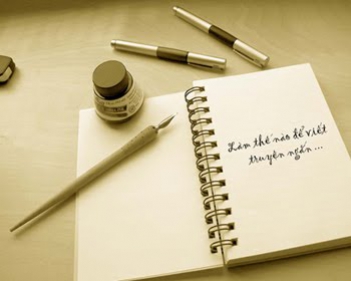 Làm thế nào để viết
truyện ngắn...